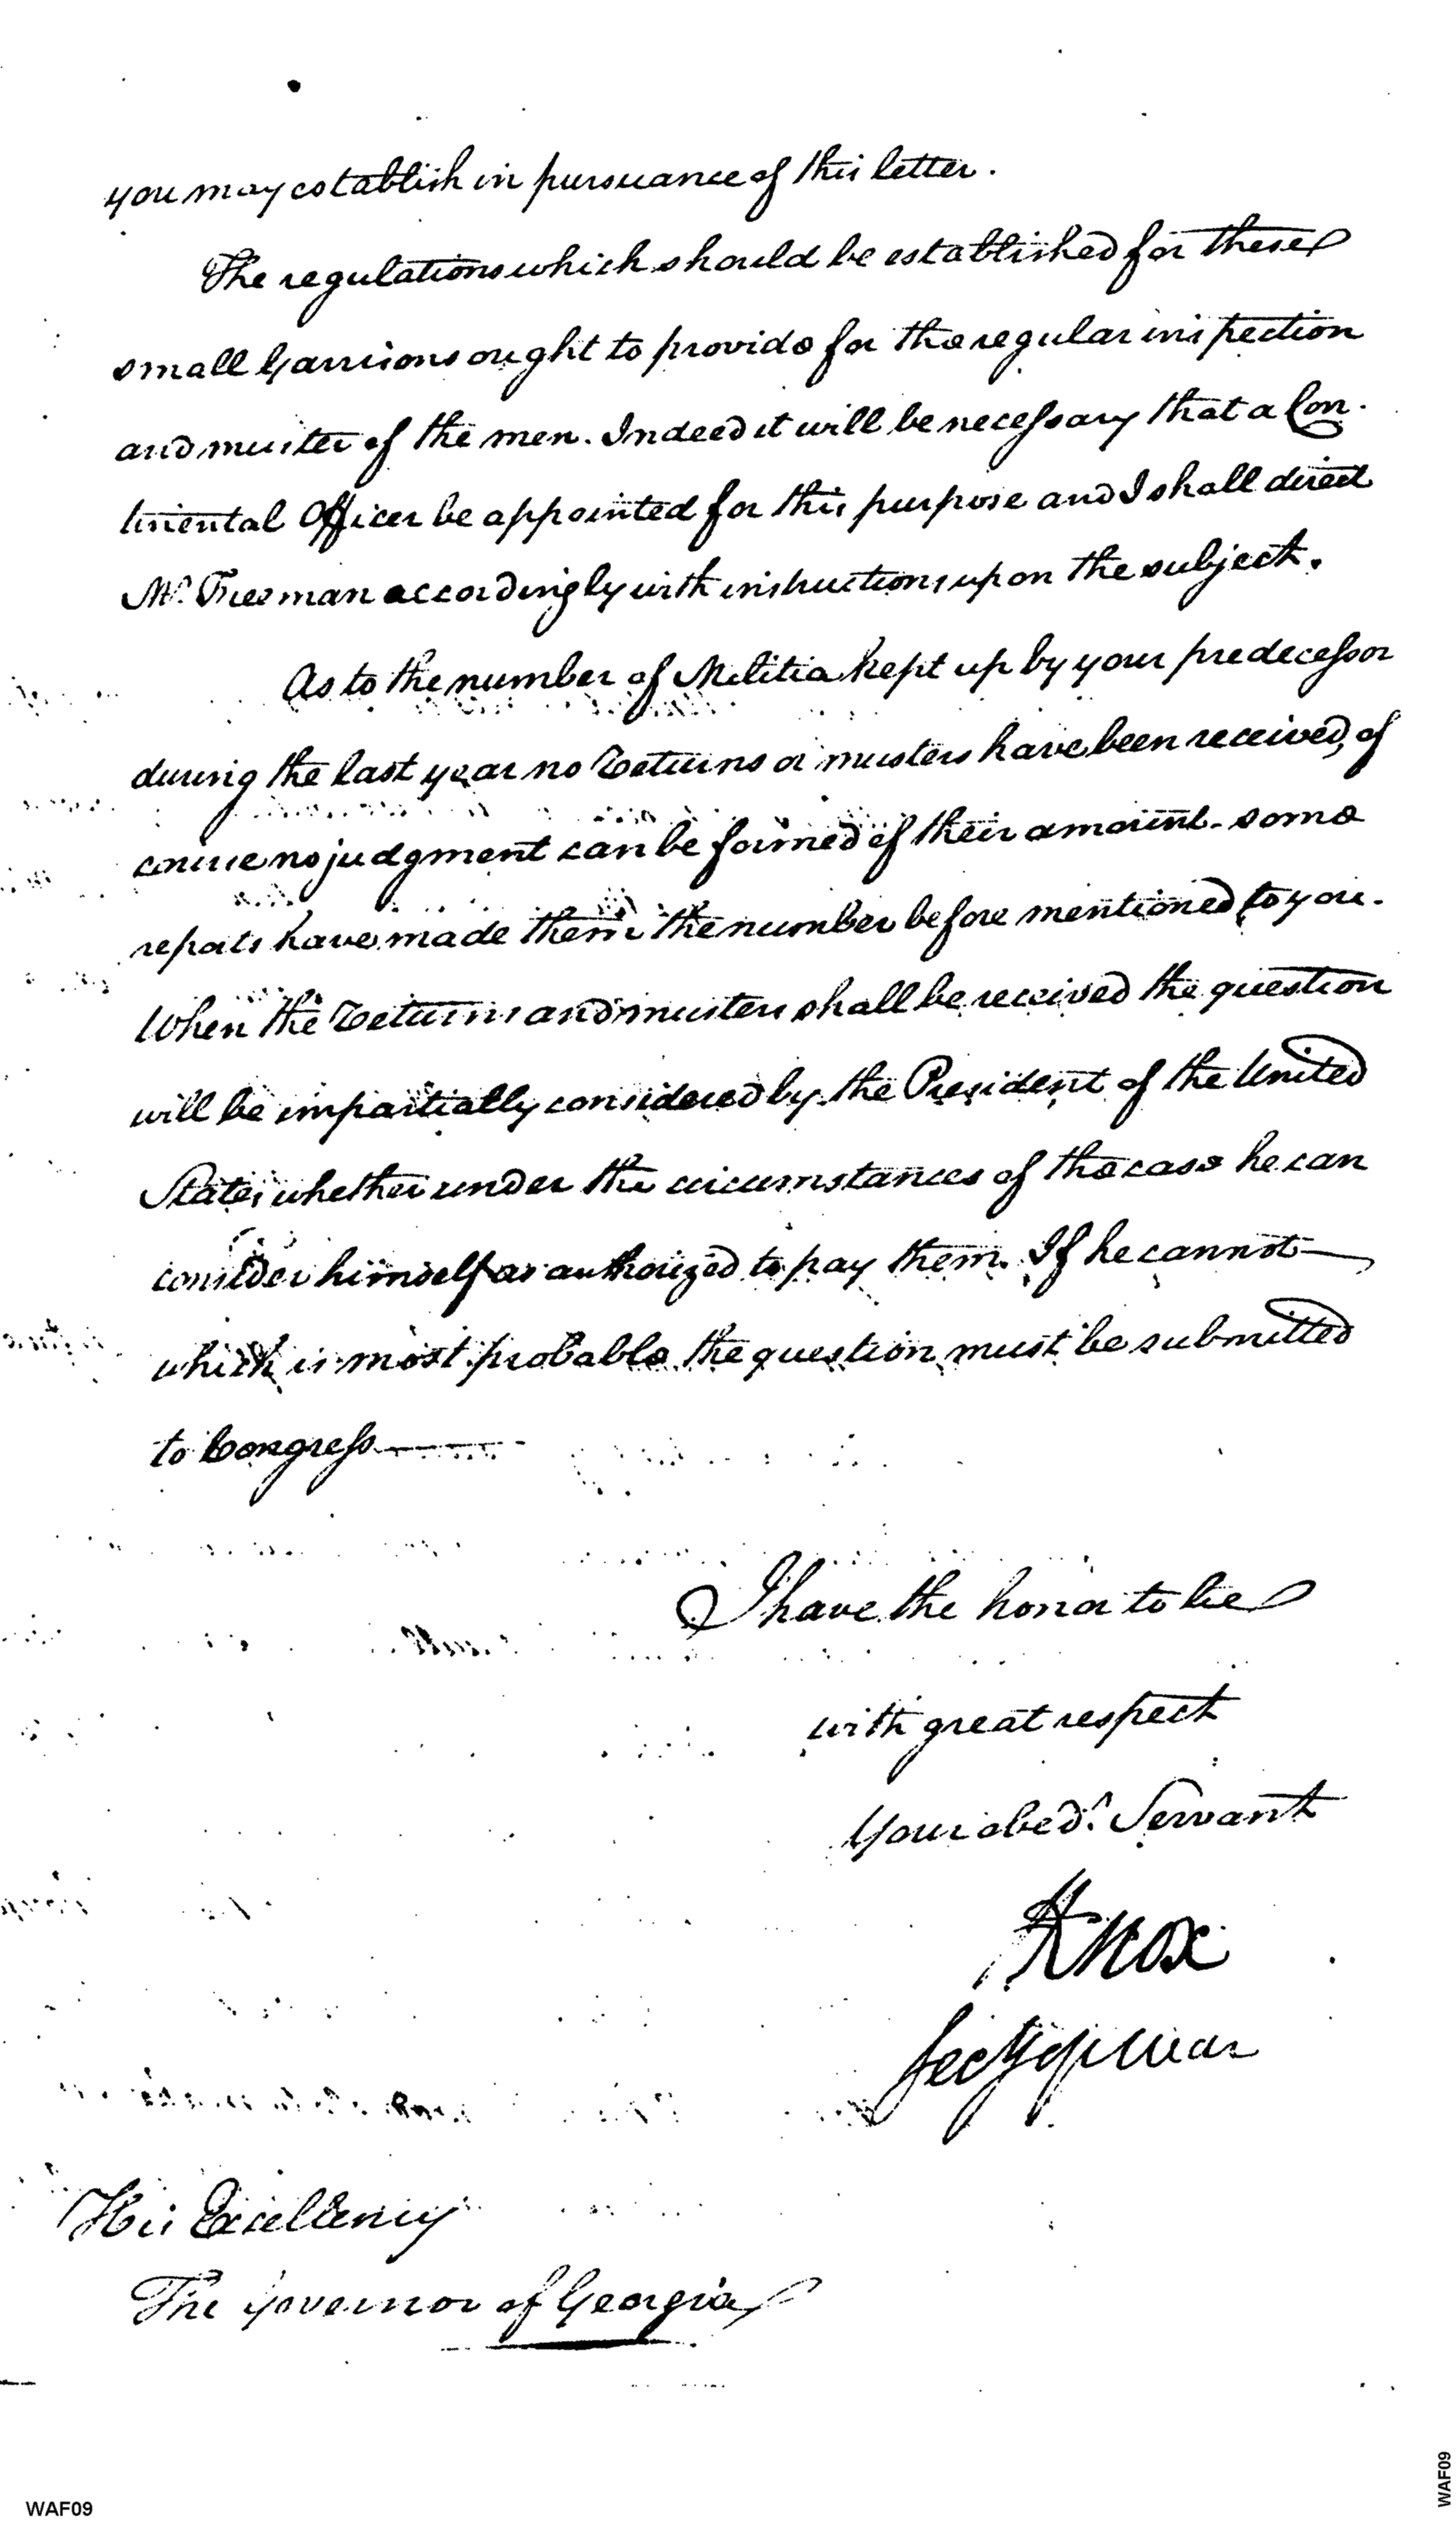 you may establish in pursuance of this letter.
The regulations which should be established for these
small Garrisons ought to provide for the regular inspection
and muster of the men. Indeed it will be necessary that a Con-
tinental Officer be appointed for this purpose and I shall direct
Mr. Freeman accordingly with instructions upon the subject.
As to the number of Militia kept up by your predecessor
during the last year no Returns or musters have been received, of
course no judgment can be formed of their amount - some
reports have made them the number before mentioned to you.
When the Returns and musters shall be received the question
will be impartially considered by the President of the United
States whether under the circumstances of the case he can
consider himself as authorized to pay them. If he cannot —
which is most probable the question must be submitted
to Congress —
I have the honor to be
with great respect
Your obedt. Servant
HKnox
Secy of War
His Excellency
The Governor of Georgia
WAF09
WAF09